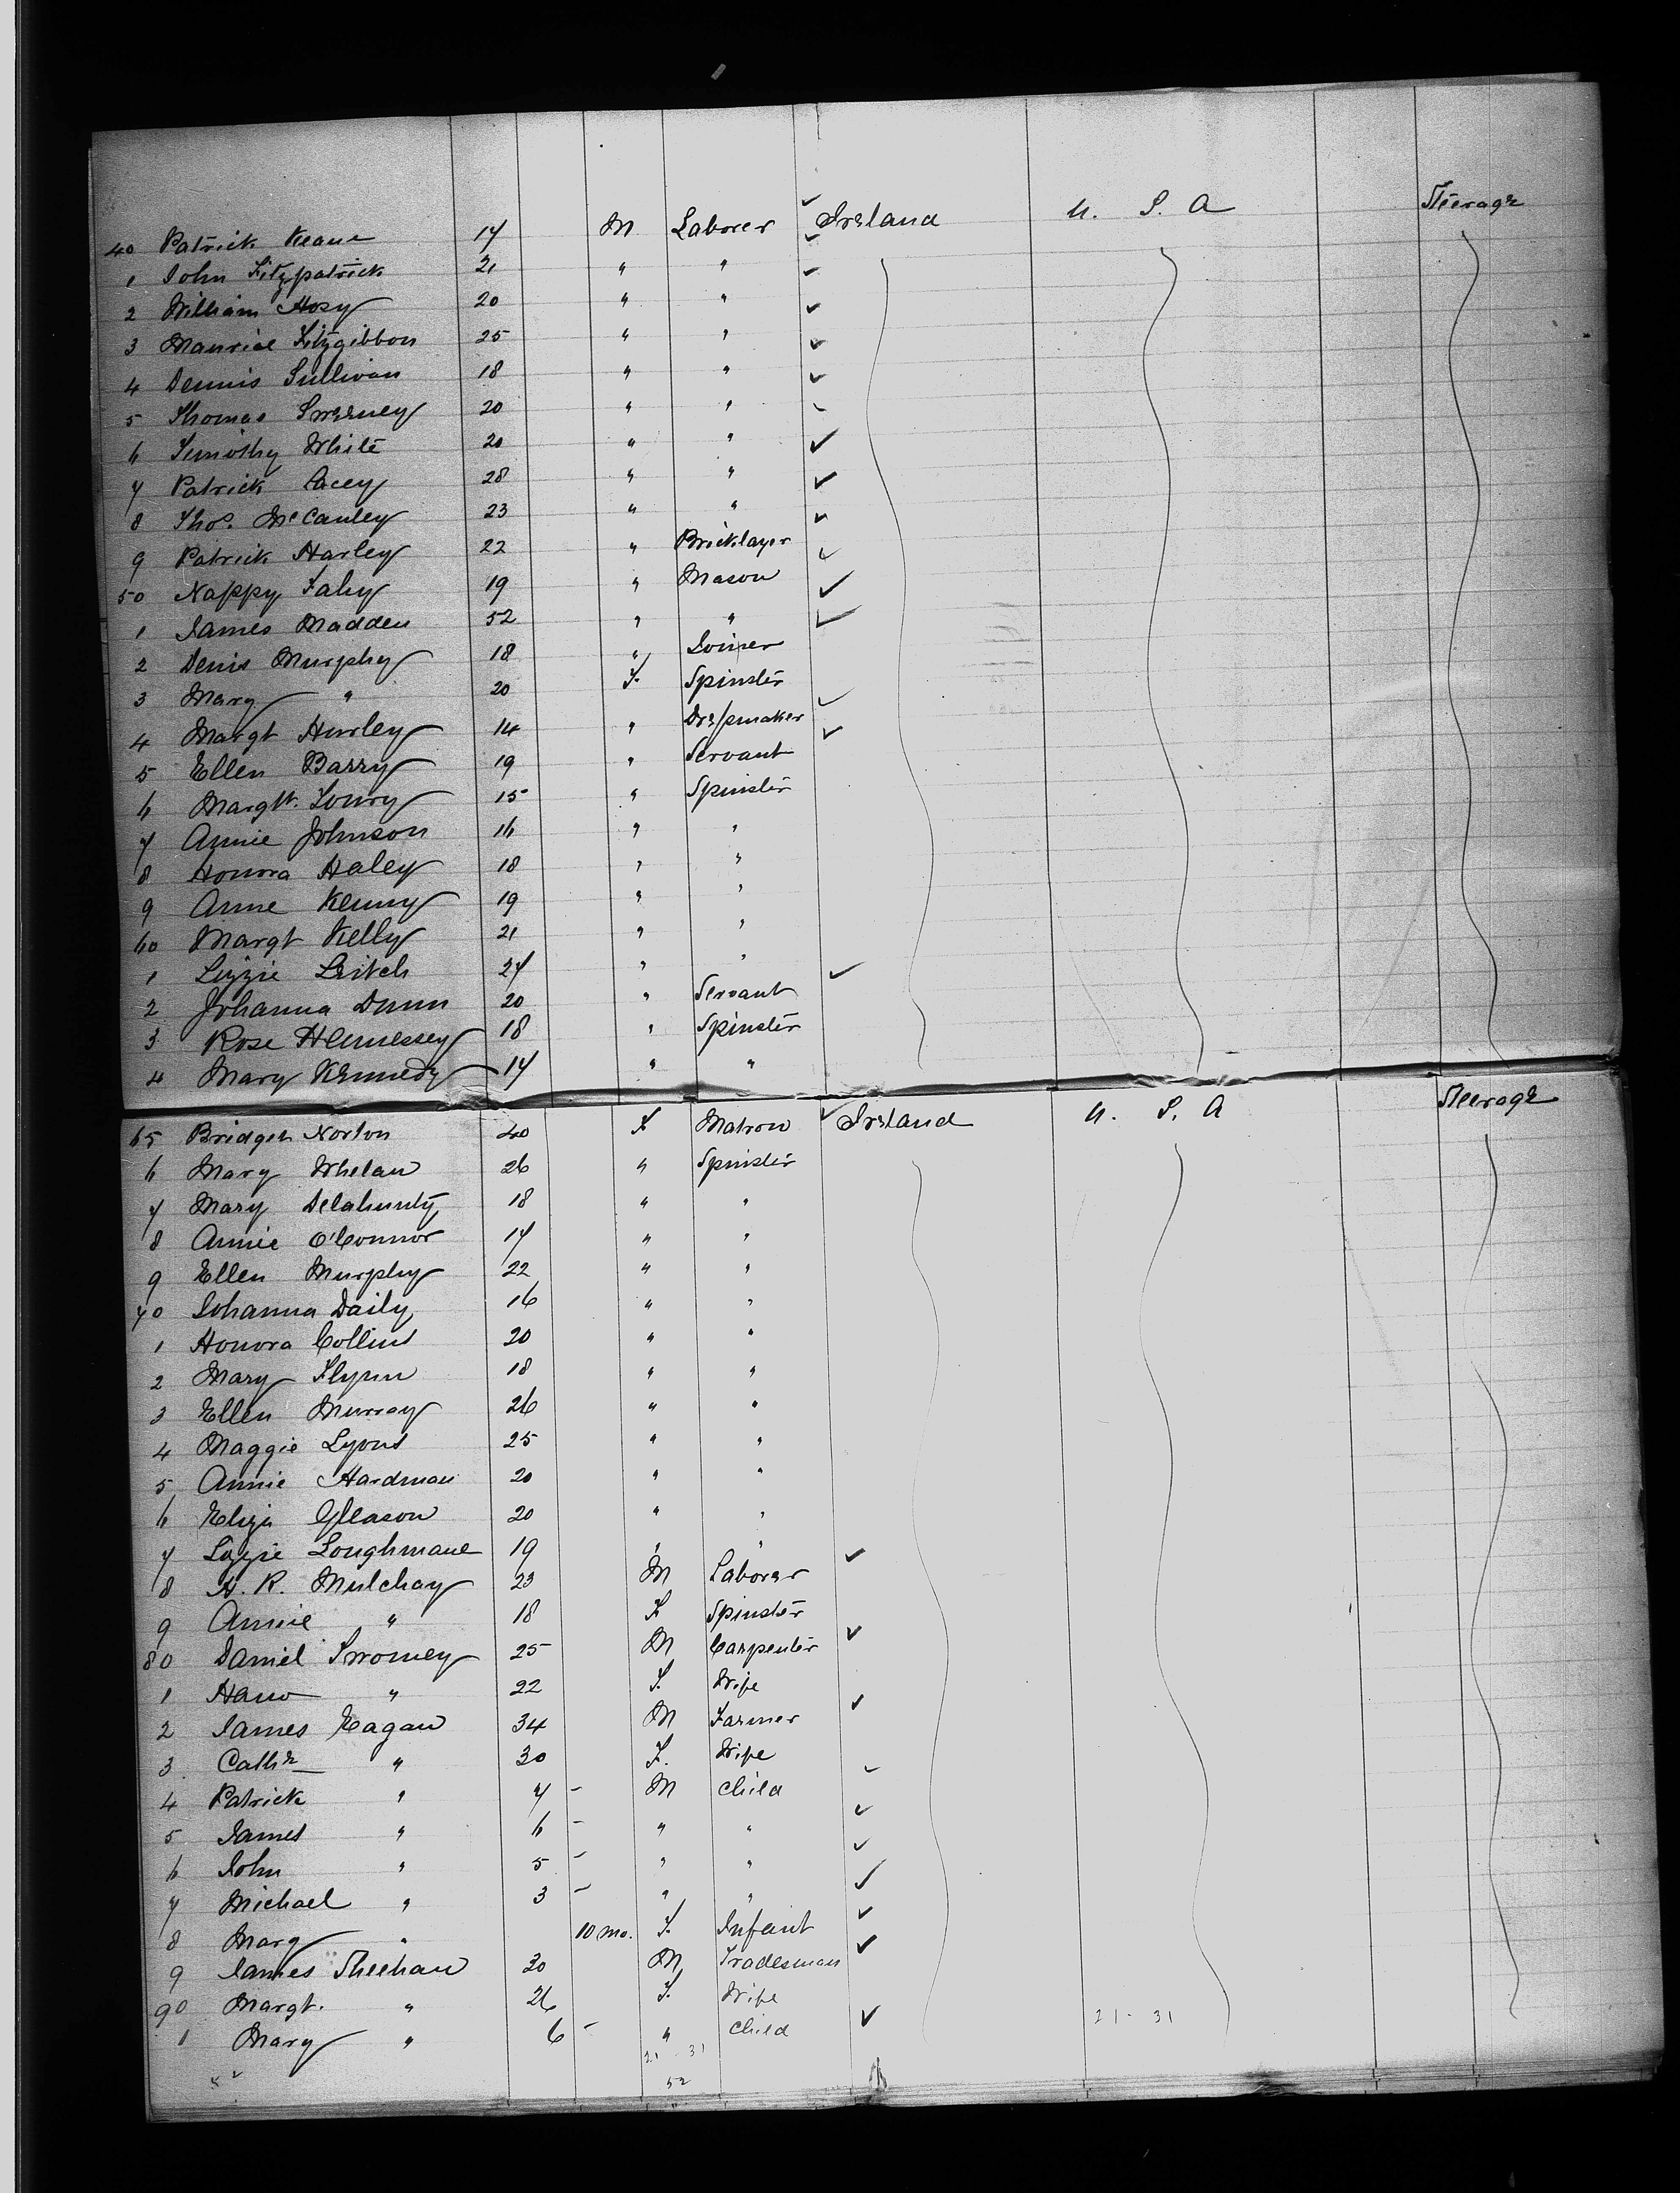 40 Patrick Keane 17 M Laborer Ireland U. S. A Steerage
1 John Fitzpatrick 21 " "
2 William Hosy 20 " "
3 Maurice Fitzgibbon 25 " "
4 Dennis Sullivan 18 " "
5 Thomas Sweeney 20 " "
6 Timothy White 20 " "
7 Patrick Lacey 28 " "
8 Thos. McCauley 23 " "
9 Patrick Harley 22 " Bricklayer
50 Nappy Fahy 19 " Mason
1 James Madden 52 " "
2 Denis Murphy 18 " Joiner
3 Mary " 20 F. Spinster
4 Margt Hurley 14 " Dressmaker
5 Ellen Barry 19 " Servant
6 Margtt. Lowry 15 " Spinster
7 Annie Johnson 16 " "
8 Honora Haley 18 " "
9 Anne Kenny 19 " "
60 Margt Kelly 21 " "
1 Lizzie Leitch 27 " "
2 Johanna Dunn 20 " Servant
3 Rose Hennessey 18 " Spinster
4 Mary Kennedy 17 " "
65 Bridget Norton 40 F Matron Ireland U. S. A Steerage
6 Mary Whelan 26 " Spinster
7 Mary Delahunty 18 " "
8 Annie O'Connor 17 " "
9 Ellen Murphy 22 " "
70 Johanna Daily 16 " "
1 Honora Collins 20 " "
2 Mary Flynn 18 " "
3 Ellen Murray 26 " "
4 Maggie Lyons 25 " "
5 Annie Hardman 20 " "
6 Eliza Gleason 20 " "
7 Lizzie Loughmane 19 " "
8 H. R. Mulchay 23 M Laborer
9 Annie " 18 F Spinster
80 Daniel Twomey 25 M Carpenter
1 Hano " 22 F. Wife
2 James Eagan 34 M Farmer
3 Cathe " 30 F. Wife
4 Patrick " 7 - M Child
5 James " 6 - " "
6 John " 5 - " "
7 Michael " 3 - " "
8 Mary " 10 mo. F. Infant
9 James Sheehan 30 M Tradesman
90 Margt. " 26 F. Wife
1 Mary " 6 - " Child 21 - 31
21 31
52